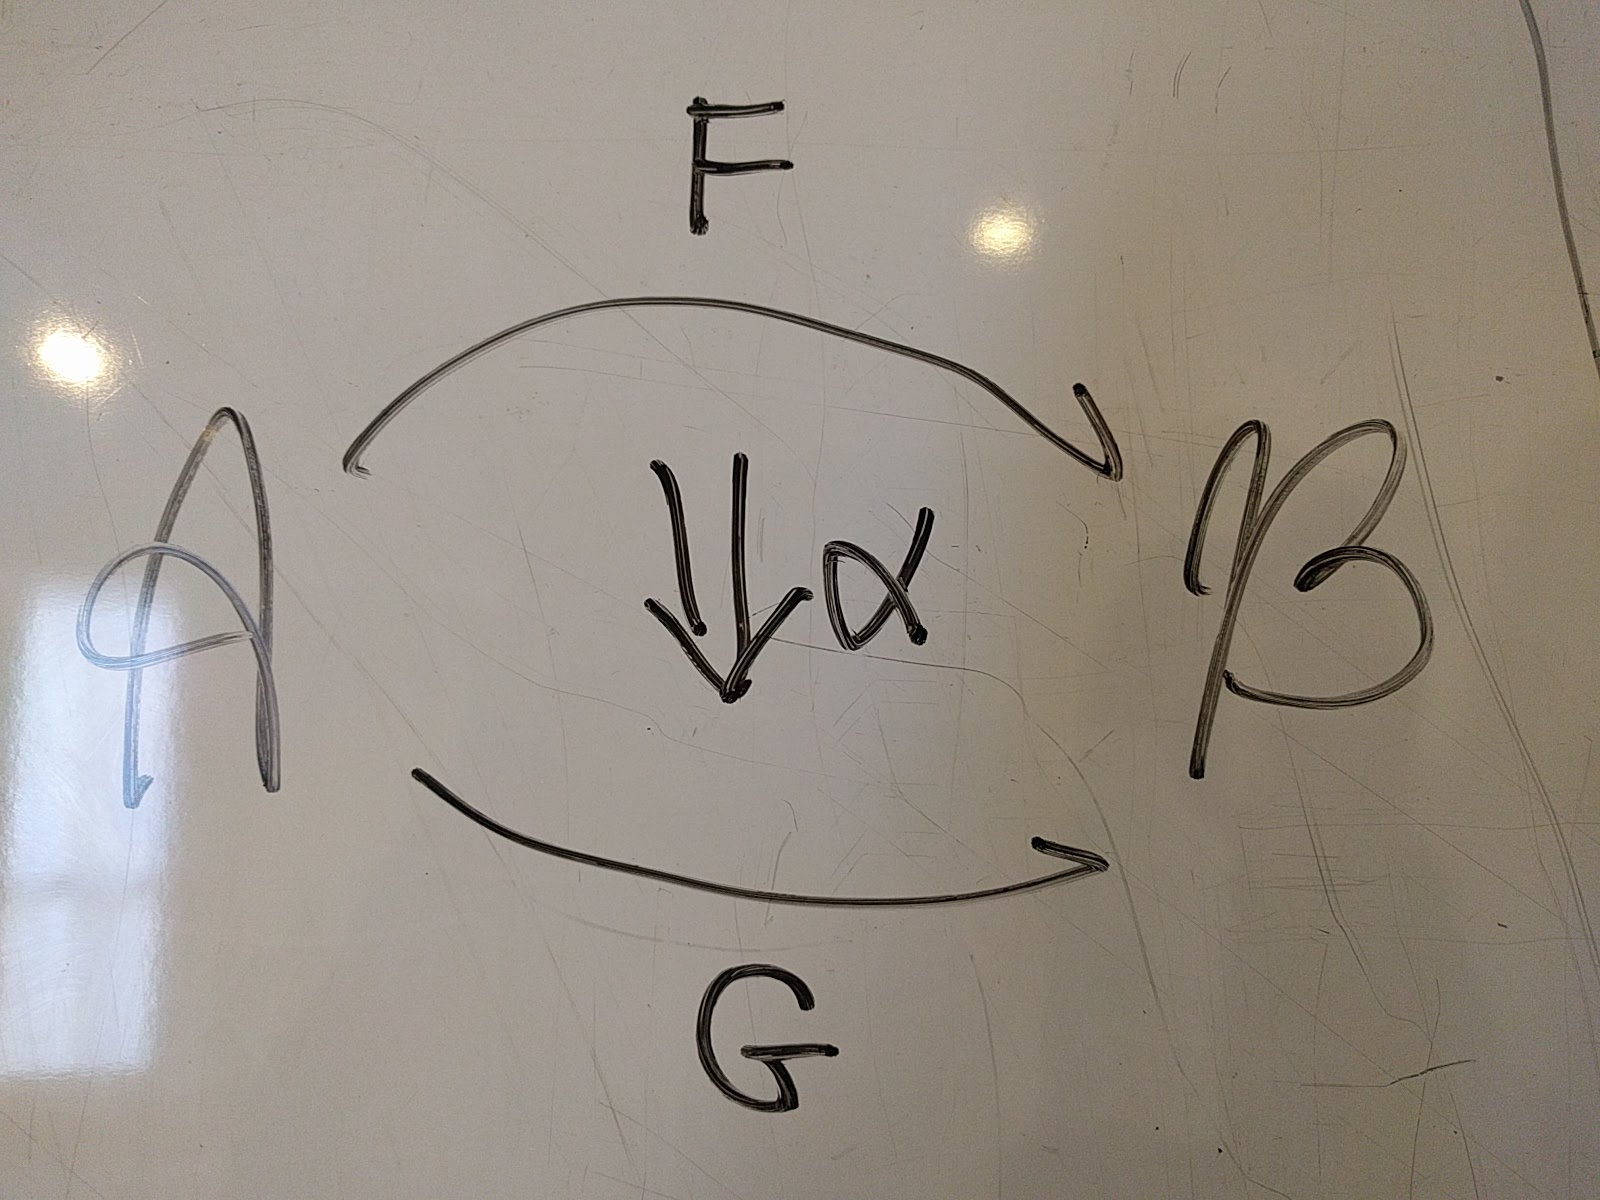 F
A ⇓ α B
G